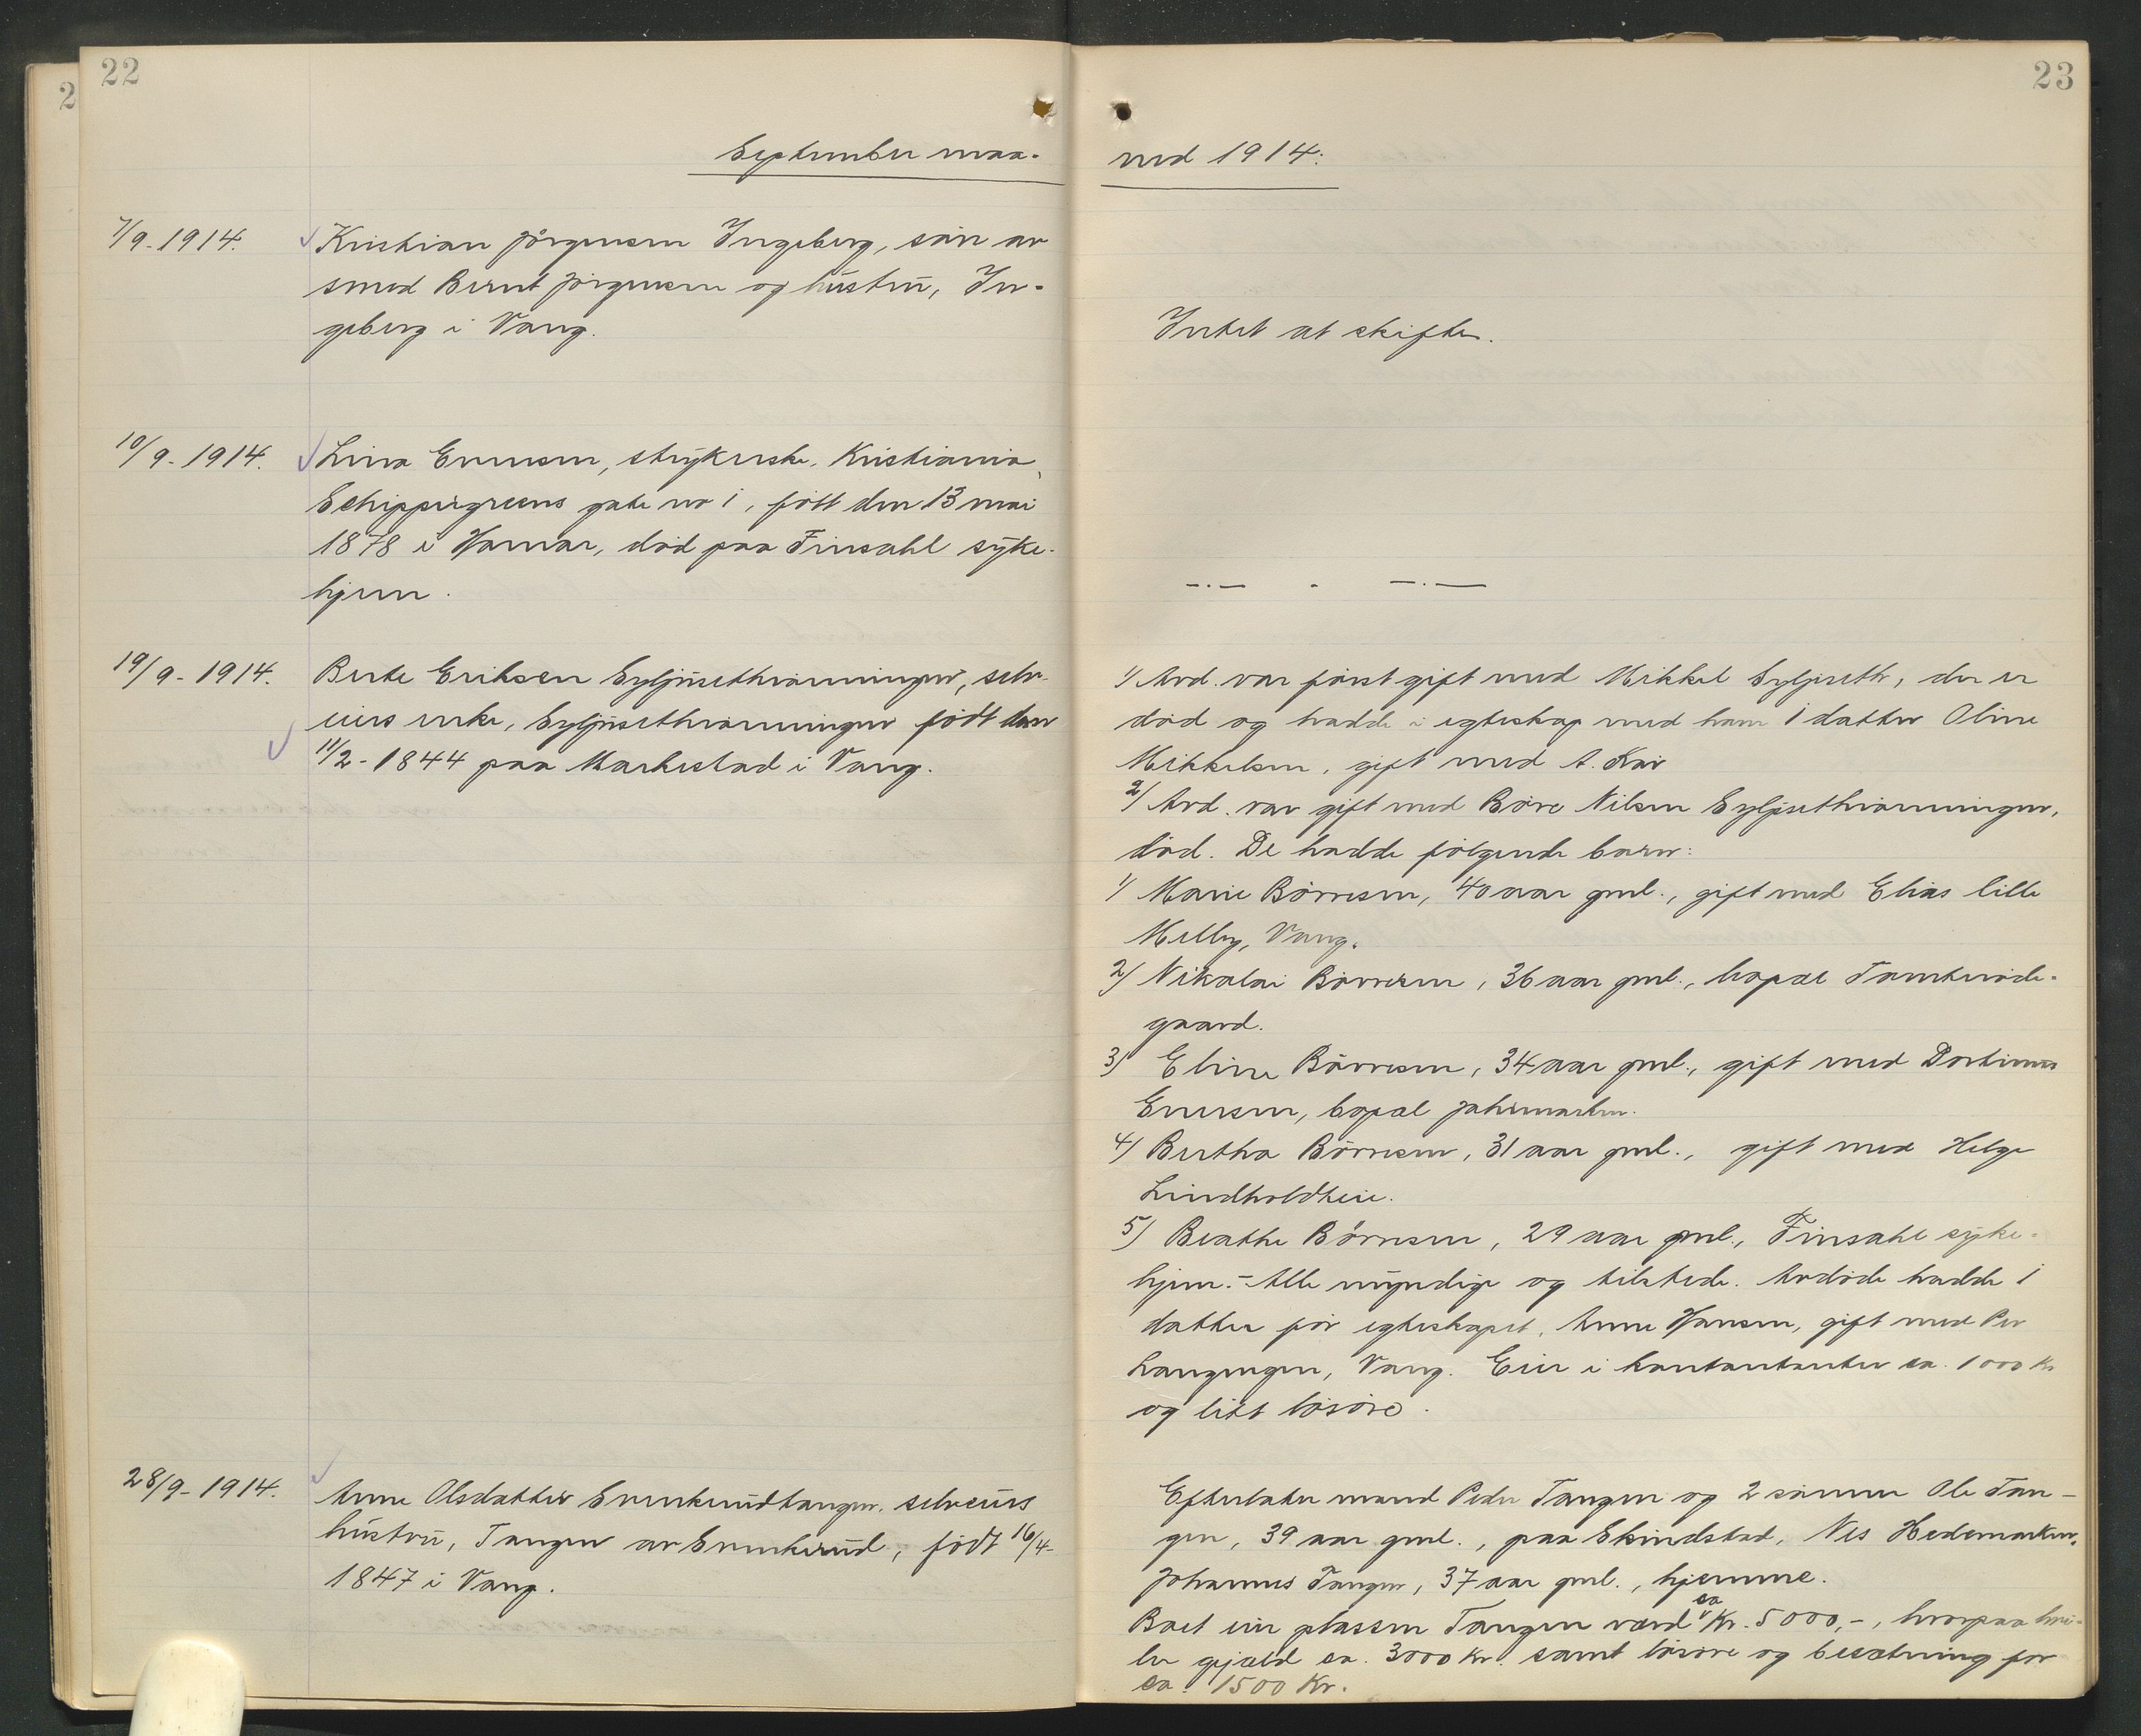 22
2
September maa-
7/9-1914. Kristian Jörgensen Ingeberg, sön av
smed Bernt Jörgensen og hustru, In-
geberg i Vang.
10/9-1914. Lina Evensen, strykerske, Kristiania,
Schippergreens gate no 1, fött den 13 mai
1878 i Hamar, död paa Finsahl syke-
hjem.
19/9-1914. Berte Eriksen Syljusethvammingen, selv-
eiers enke, Syljusethvammingen födt den
11/2-1844 paa Markestad i Vang.
28/9-1914. Anne Olsdatter Svenkerudtangen, selveiers
hustru, Tangen av Svenkerud, födt 16/4-
1847 i Vang.
23
ned 1914:
Intet at skifte.
—.— - —.—
1/ Avd. var först gift med Mikkel Syljuseth, der er
död og hadde i egteskap med ham 1 datter Oline
Mikkelsen, gift med A.
2/ Avd. var gift med Böre Nilsen Syljusethvammingen,
död. De hadde fölgende barn:
1/ Marie Börresen, 40 aar gml., gift med Elias lille
Melby, Vang.
2/ Nikolai Börresen, 36 aar gml., bopæl
gaard.
3) Eline Börresen, 34 aar gml., gift med
Enersen, bopæl
4) Bertha Börresen, 31 aar gml., gift med Helge
Lindholdteie.
5) Beathe Börresen, 29 aar gml., Finsahl syke-
hjem.- Alle myndige og tilstede. Avdöde hadde 1
datter för egteskapet, Anne Hansen, gift med Per
Langengen, Vang. Eier i kontantanter ca. 1000 Kr
og litt lösöre.
Efterlater mand Peder Tangen og 2 sönner Ole Tan-
gen, 39 aar gml., paa Skindstad, Nes Hedemarken,
Johannes Tangen, 37 aar gml., hjemme.
Boet eier plassen Tangen værd ca Kr. 5000,-, hvorpaa hvi-
ler gjæld ca. 3000 Kr. samt lösöre og besætning for
ca. 1500 Kr.